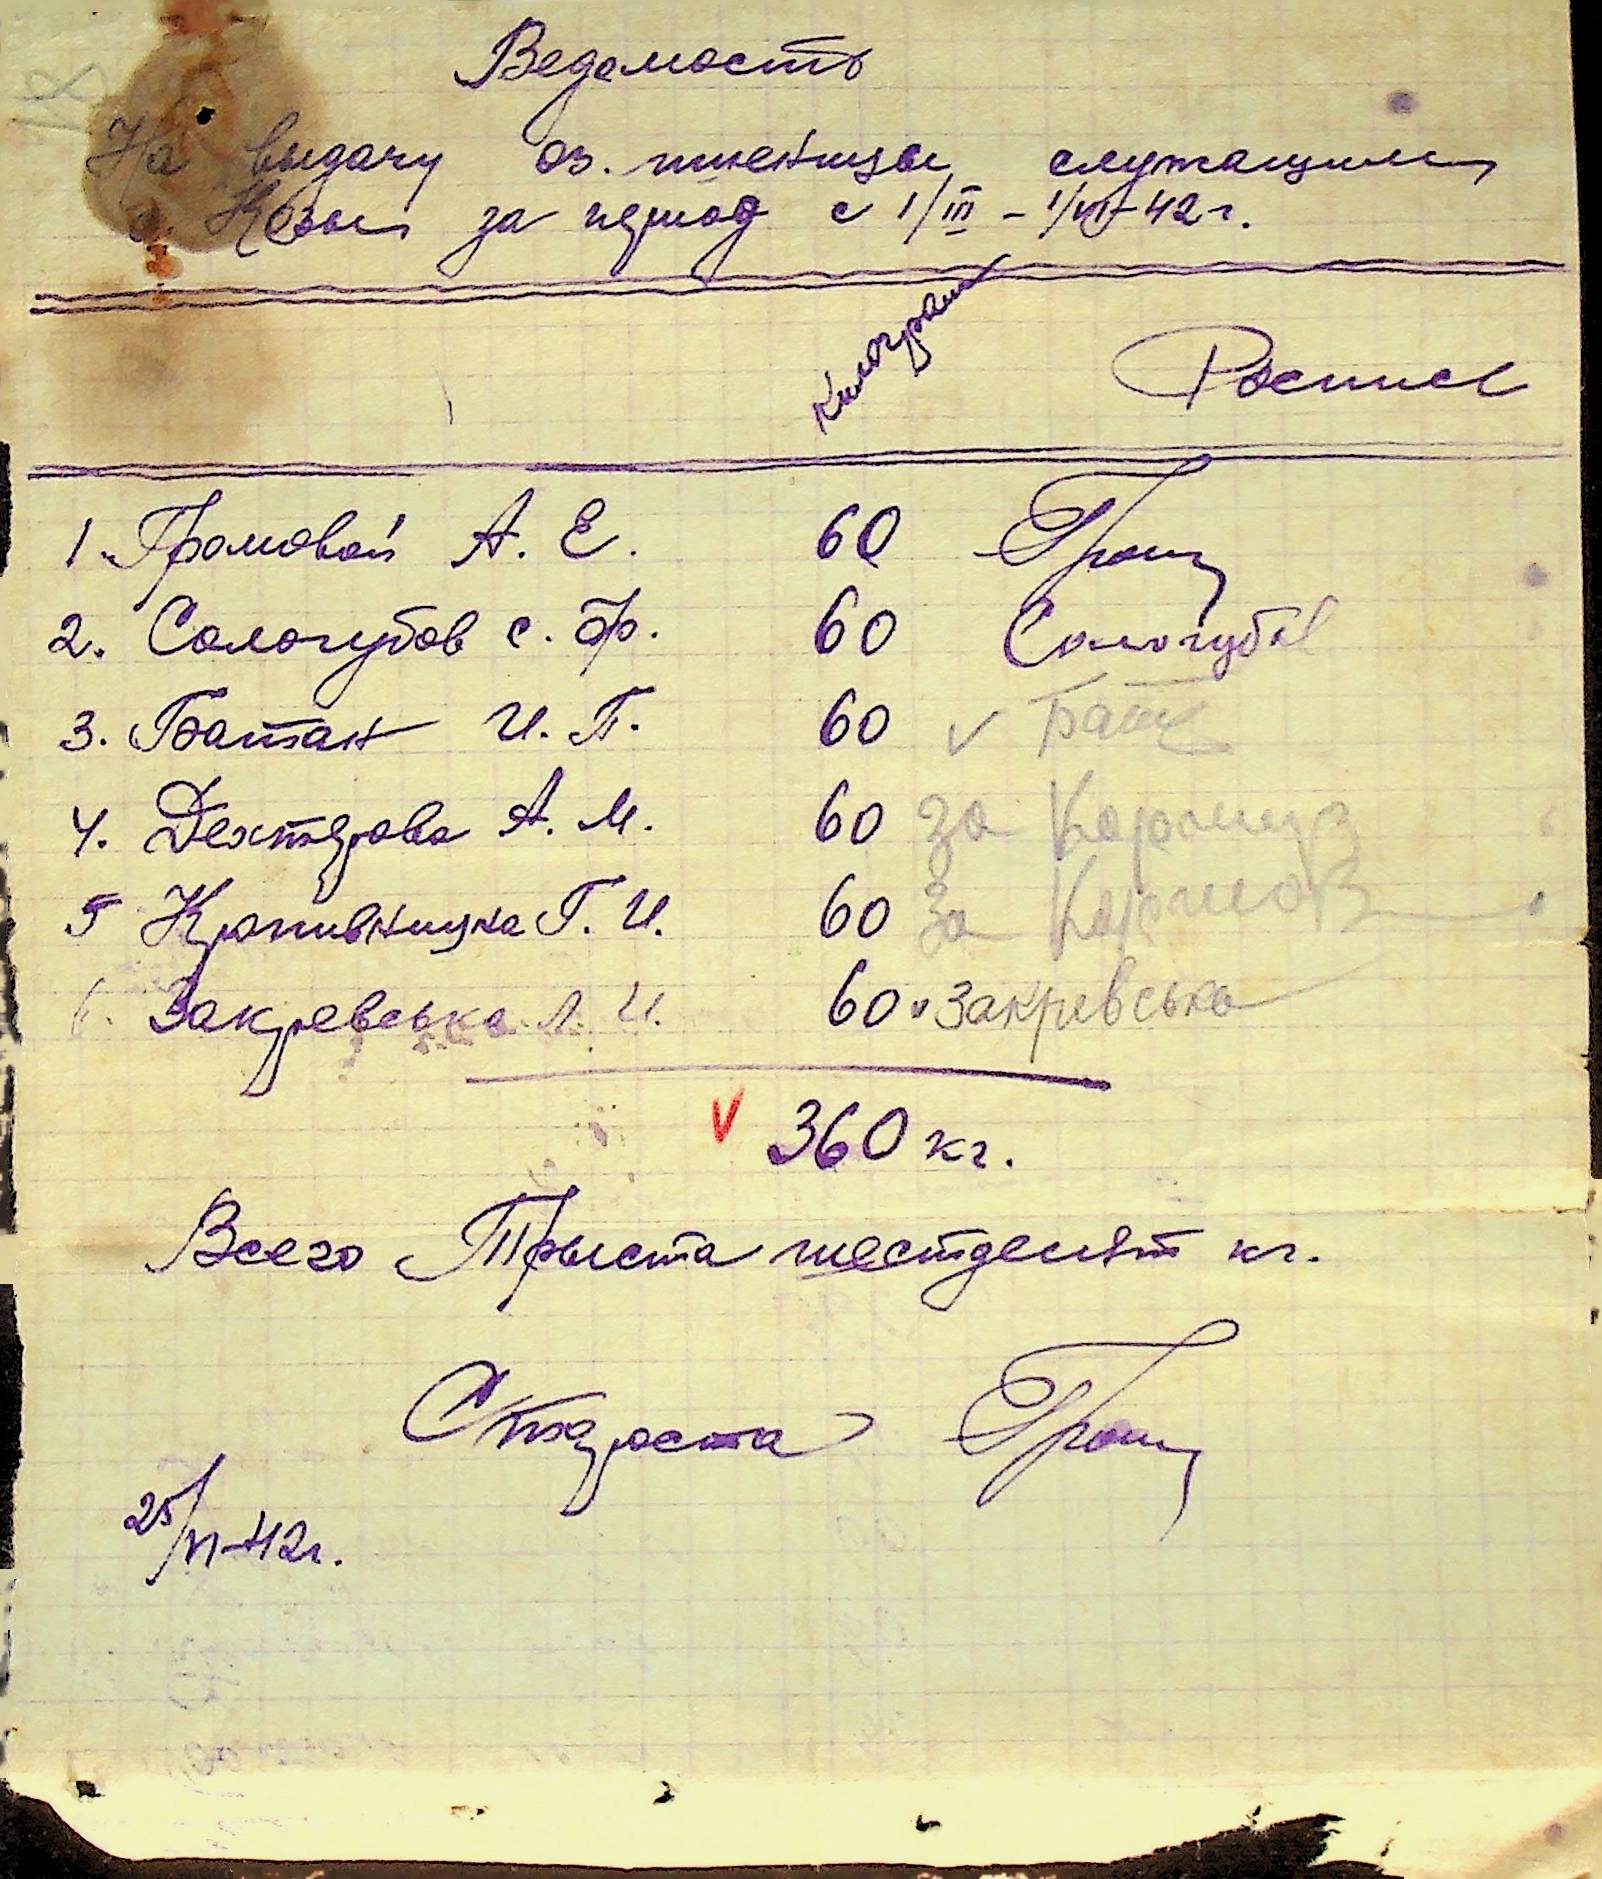 Ведомость
На выдачу оз. пшеницы служащим
с. Козы за период с 1/III – 1/VI–42 г.
Килограм Роспись
1. Громовой А. Е. 60 Гром
2. Сологубов С. Ф. 60 Сологубов
3. Батан И. П. 60 v Бат
4. Дехтярова А. М. 60 за
5 Кропивницка Г. И. 60 За
6. Закревська Л. И. 60 v Закревська
v 360 кг.
Всего Трыста шестдесят кг.
Староста Гром
25/VI–42 г.